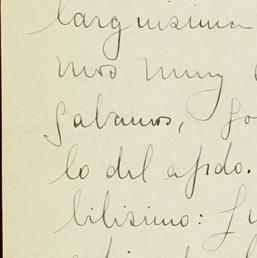 larguisima
mos muy
gabamos,
lo del apdo.
bilisimo: